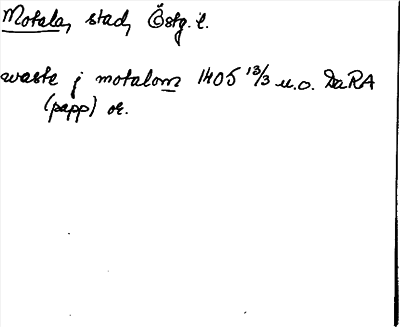 Motala, stad, Östg. l.
waste j motalom 1405 13/3 u.o. DaRA
(papp) or.